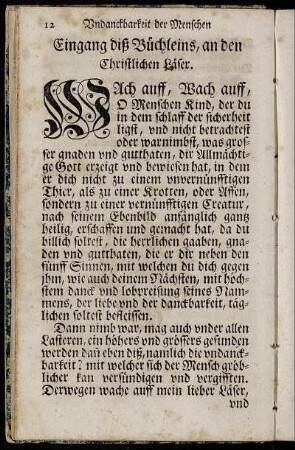 12 Vndanckbarkeit der Menschen
Eingang diß Büchleins, an den
Christlichen Läser.
WAch auff, Wach auff,
O Menschen Kind, der du
in dem schlaff der sicherheit
ligst, vnd nicht betrachtest
oder warnimbst, was gros-
ser gnaden vnd gutthaten, dir Allmächti-
ge Gott erzeigt vnd bewiesen hat, in dem
er dich nicht zu einem vnvernünfftigen
Thier, als zu einer Krotten, oder Affen,
sondern zu einer vernünfftigen Creatur,
nach seinem Ebenbild anfänglich gantz
heilig, erschaffen und gemacht hat, da du
billich soltest, die herrlichen gaaben, gna-
den vnd gutthaten, die er dir neben den
fünff Sinnen, mit welchen du dich gegen
jhn, wie auch deinem Nächsten, mit höch-
stem danck vnd lobpreisung seines Nam-
mens, der liebe vnd der danckbarkeit, täg-
lichen soltest befleissen.
Dann nimb war, mag auch vnder allen
Lasteren, ein höhers vnd grössers gefunden
werden dañ eben diß, namlich die vndanck-
barkeit? mit welcher sich der Mensch gröb-
licher kan versündigen vnd vergifften.
Derwegen wache auff mein lieber Läser,
vnd